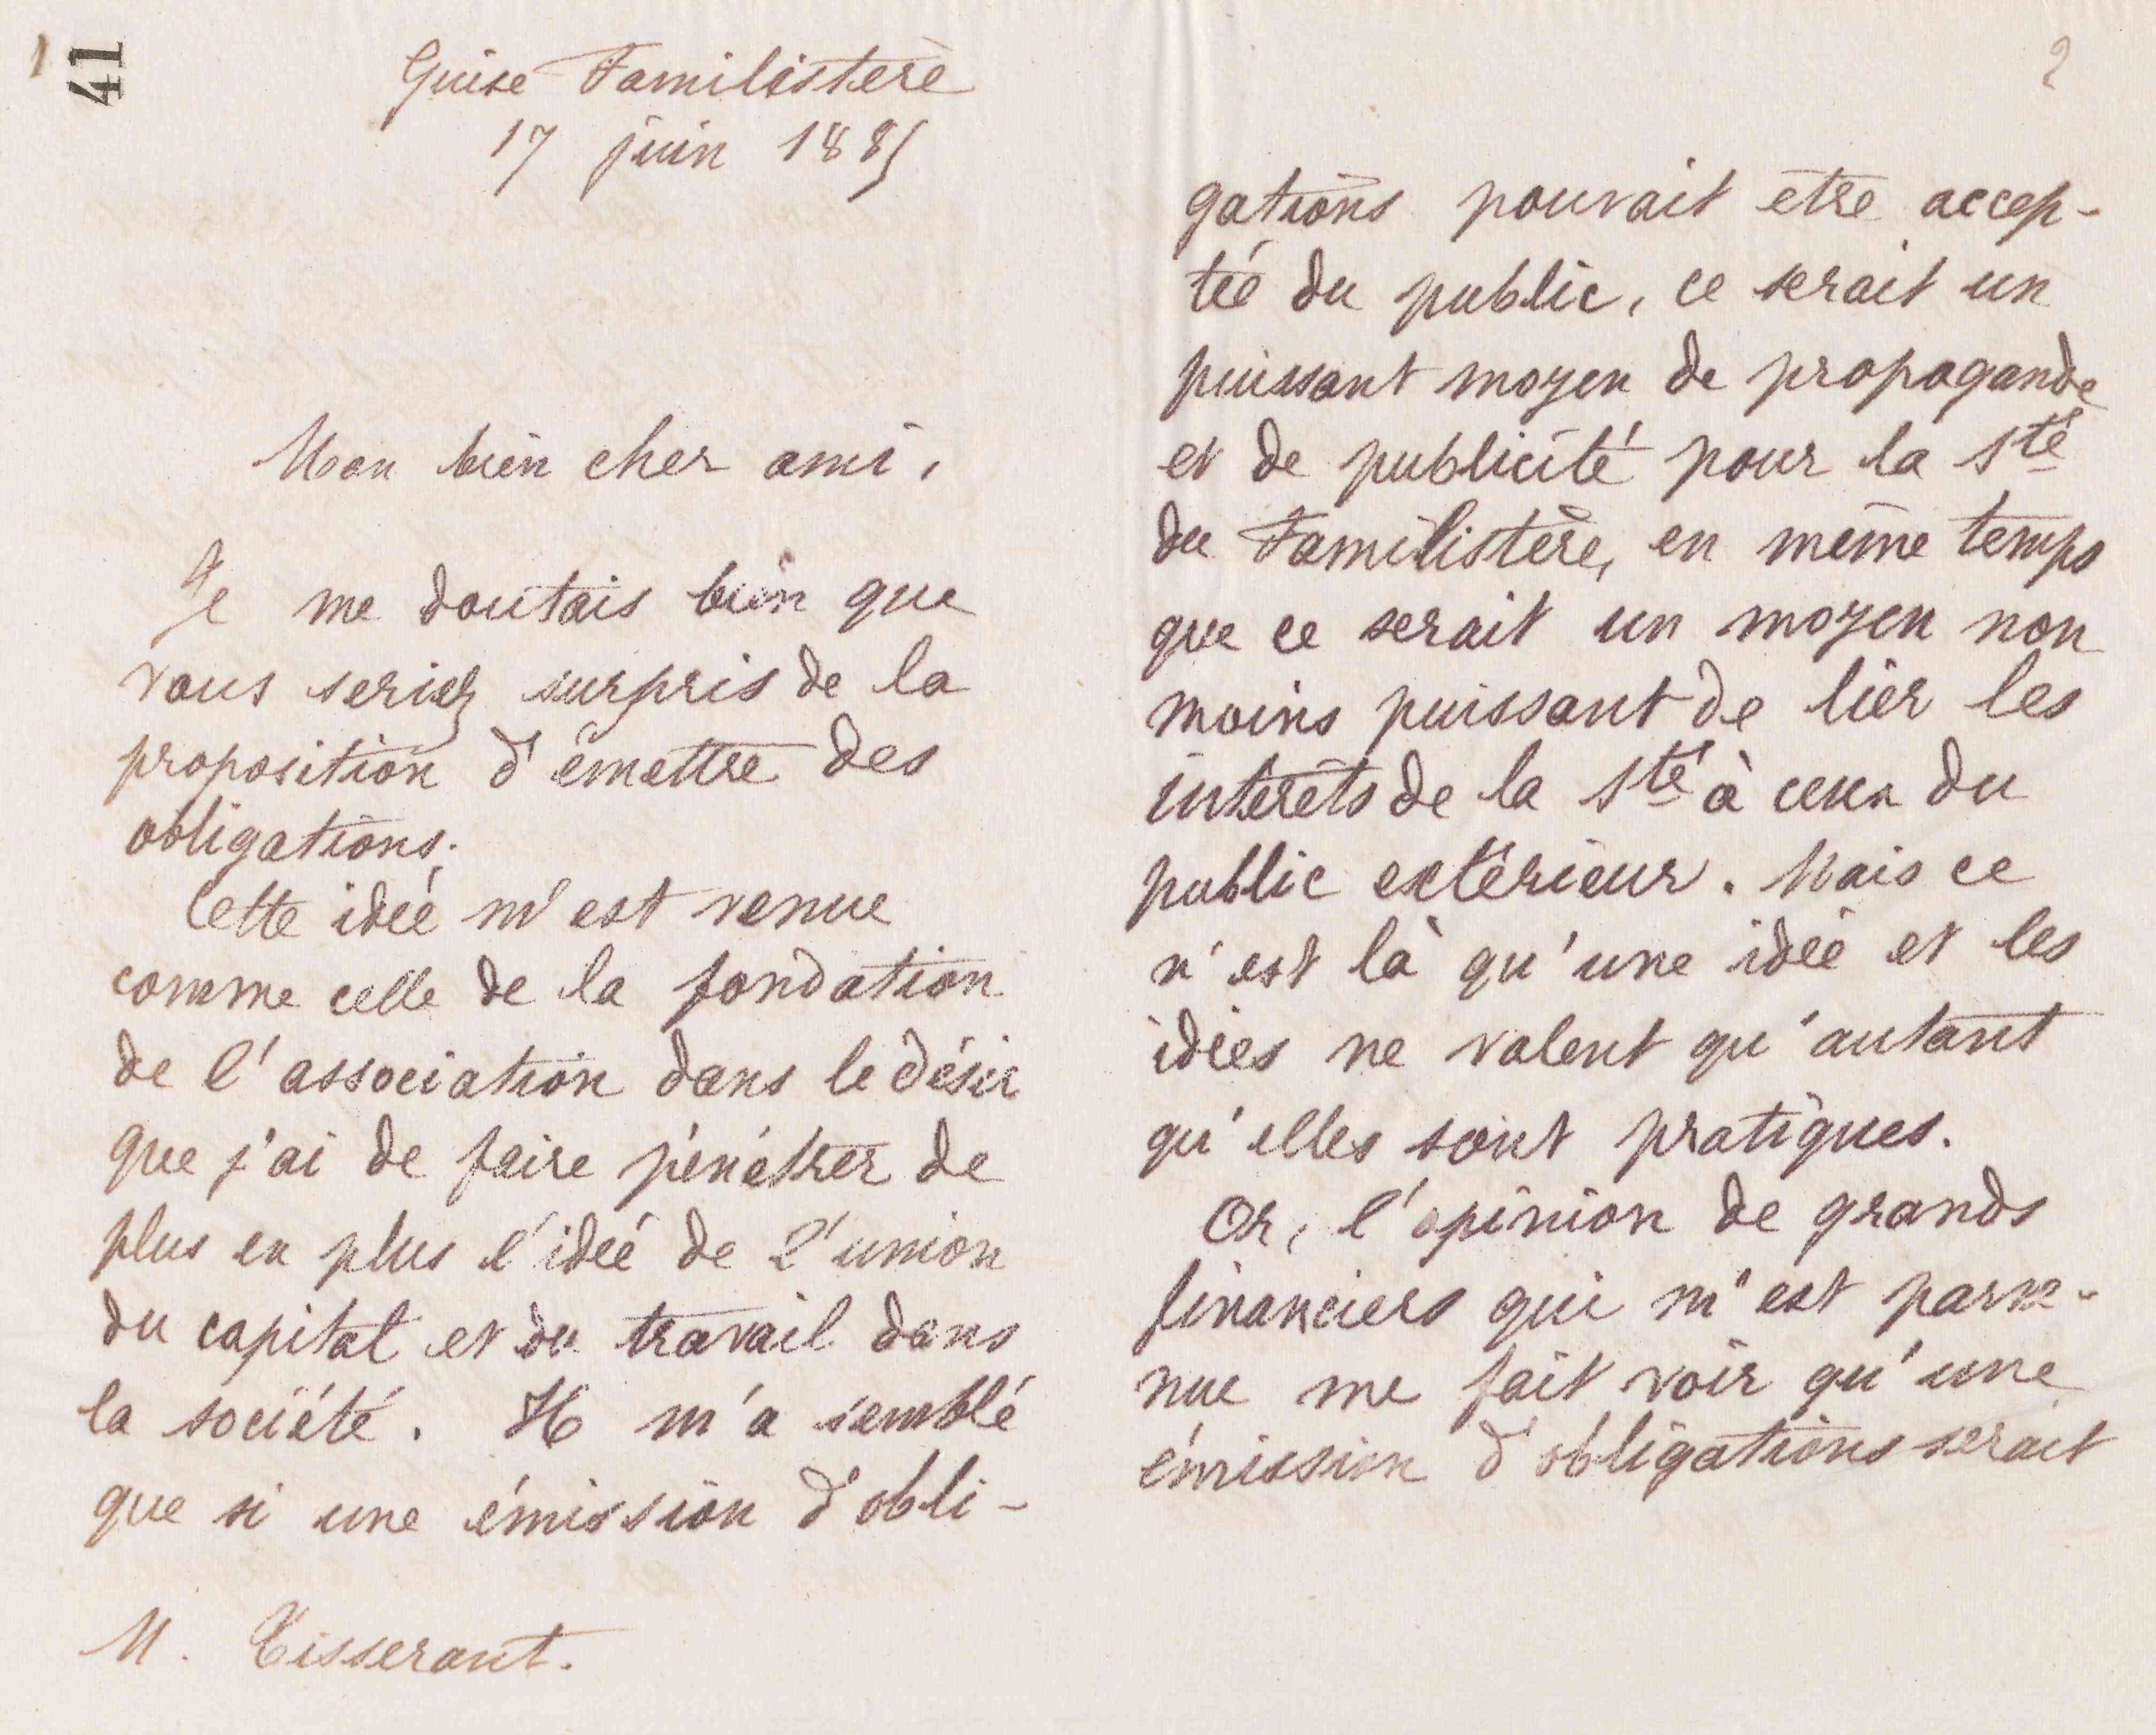 1
41
Guise Familistère
17 juin 1885
Mon bien cher ami,
Je me doutais bien que
vous seriez surpris de la
proposition d'émettre des
obligations.
Cette idée m'est venue
comme celle de la fondation
de l'association dans le désir
que j'ai de faire pénétrer de
plus en plus l'idée de l'union
du capital et du travail dans
la société. Il m'a semblé
que si une émission d'obli-
M. Tisserant.
2
gations pouvait être accep-
tée du public, ce serait un
puissant moyen de propagande
et de publicité pour la Sté
du Familistère, en même temps
que ce serait un moyen non
moins puissant de lier les
intérêts de la Sté à ceux du
public extérieur. Mais ce
n'est là qu'une idée et les
idées ne valent qu'autant
qu'elles sont pratiques.
Or, l'opinion de grands
financiers qui m'est parve-
nue me fait voir qu'une
émission d'obligations serait